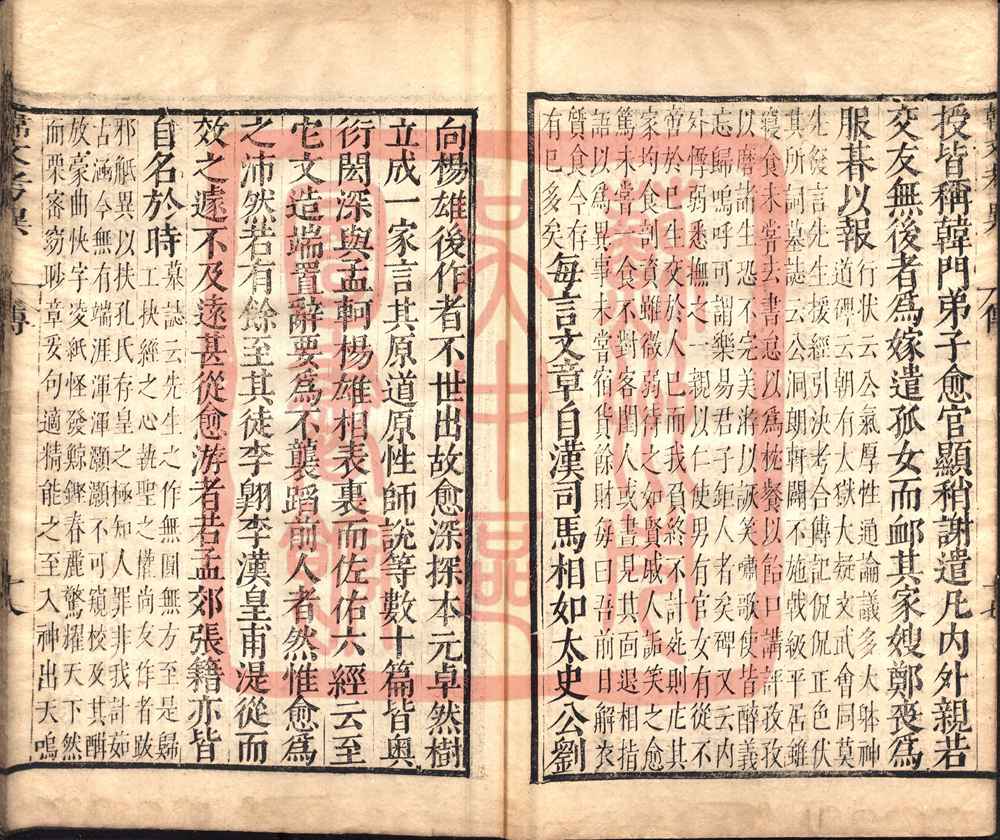 授皆稱韓門弟子愈官顯稍謝遣凡內外親若
交友無後者爲嫁遣孤女而卹其家嫂鄭喪爲
服朞以報
行狀云公氣厚性通論議多大躰神
道碑云朝有大獄大疑文武會同莫
先發言先生援經引決考合傳記侃侃正色伏
其所詞墓誌云公洞朗軒闢不施戟級平居雖
寢食未嘗去書怠以爲枕飱以飴口講評孜孜
以磨諸生恐不完美游以詼笑嘯歌使皆醉義
忘歸嗚呼可謂樂易君子鉅人者矣碑又云內
外惸弱悉撫之一親以仁使男有官女有從不
啻於己生交於人已而我負終不計死則庀其
家均食剖資雖微弱待之如賢戚人詬笑之愈
篤未嘗食不對客閨人或晝見其面退相指
語以爲異事未嘗宿貨餘財每曰吾前日解衣
質食今存
有已多矣
每言文章自漢司馬相如太史公劉
向楊雄後作者不世出故愈深探本元卓然樹
立成一家言其原道原性師說等數十篇皆奧
衍閎深與孟軻楊雄相表裏而佐佑六經云至
它文造端置辭要爲不襲蹈前人者然惟愈爲
之沛然若有餘至其徒李翺李漢皇甫湜從而
效之遽不及遠甚從愈游者若孟郊張籍亦皆
自名於時
墓誌云先生之作無圓無方至是歸
工抉經之心執聖之權尚友作者跋
邪觝異以扶孔氏存皇之極知人罪非我計茹
古涵今無有端涯渾渾灝灝不可窺校及其酣
放豪曲快字凌紙怪發鯨鏗春麗驚耀天下然
而栗密窈眇章妥句適精能之至入神出天嗚